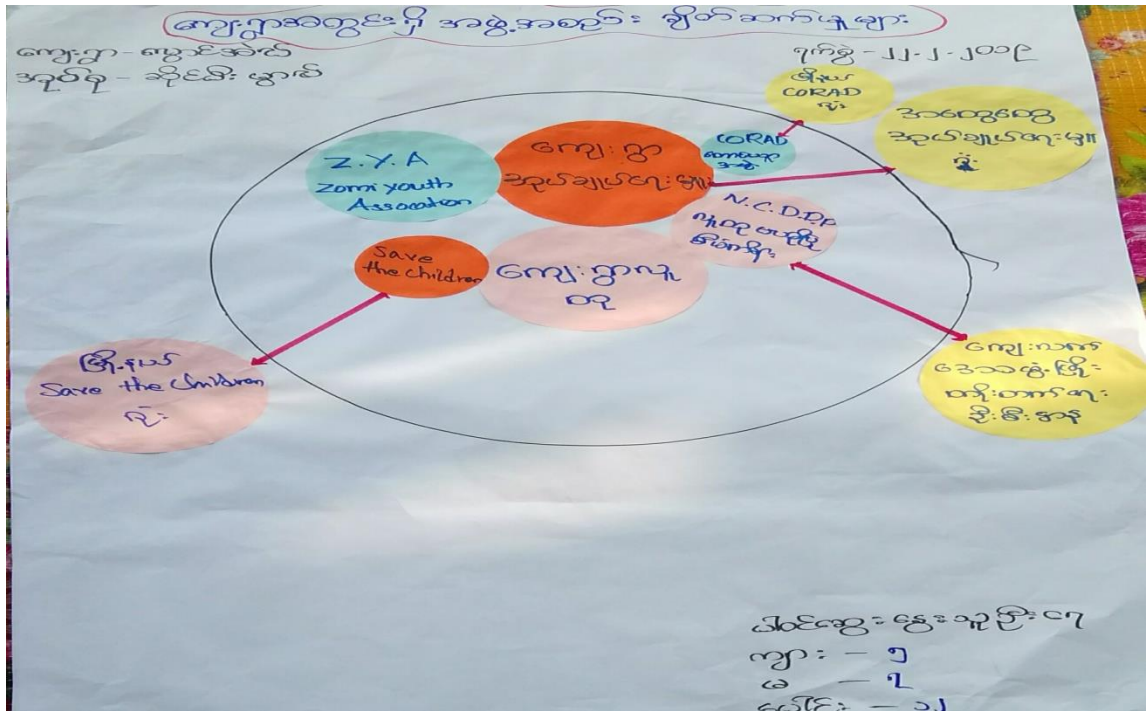 ကျေးရွာအတွင်းရှိ အဖွဲ့အစည်း ချိတ်ဆက်မှုများ
ကျေးရွာ -
ရက်စွဲ - ၂၂.၂.၂၀၁၉
အုပ်စု - ဆိုင်ဇီး
CORAD
ရုံး
အထွေထွေ
အုပ်ချုပ်ရေးမှူး
ရုံး
Z.Y.A
Zomi youth
Assocation
ကျေးရွာ
အုပ်ချုပ်ရေးမှူး
CORAD
N.C.D.D.P
လူထုဗဟိုပြု
စီမံကိန်း
Save
the children
ကျေးရွာလူ
ထု
မြို့နယ်
Save the children
ရုံး
ကျေးလက်
ဒေသဖွံ့ဖြိုး
တိုးတက်ရေး
ဦးစီးဌာန
ပါဝင်ဆွေးနွေးသူဦးရေ
ကျား - ၅
မ - ၇
ပေါင်း - ၁၂